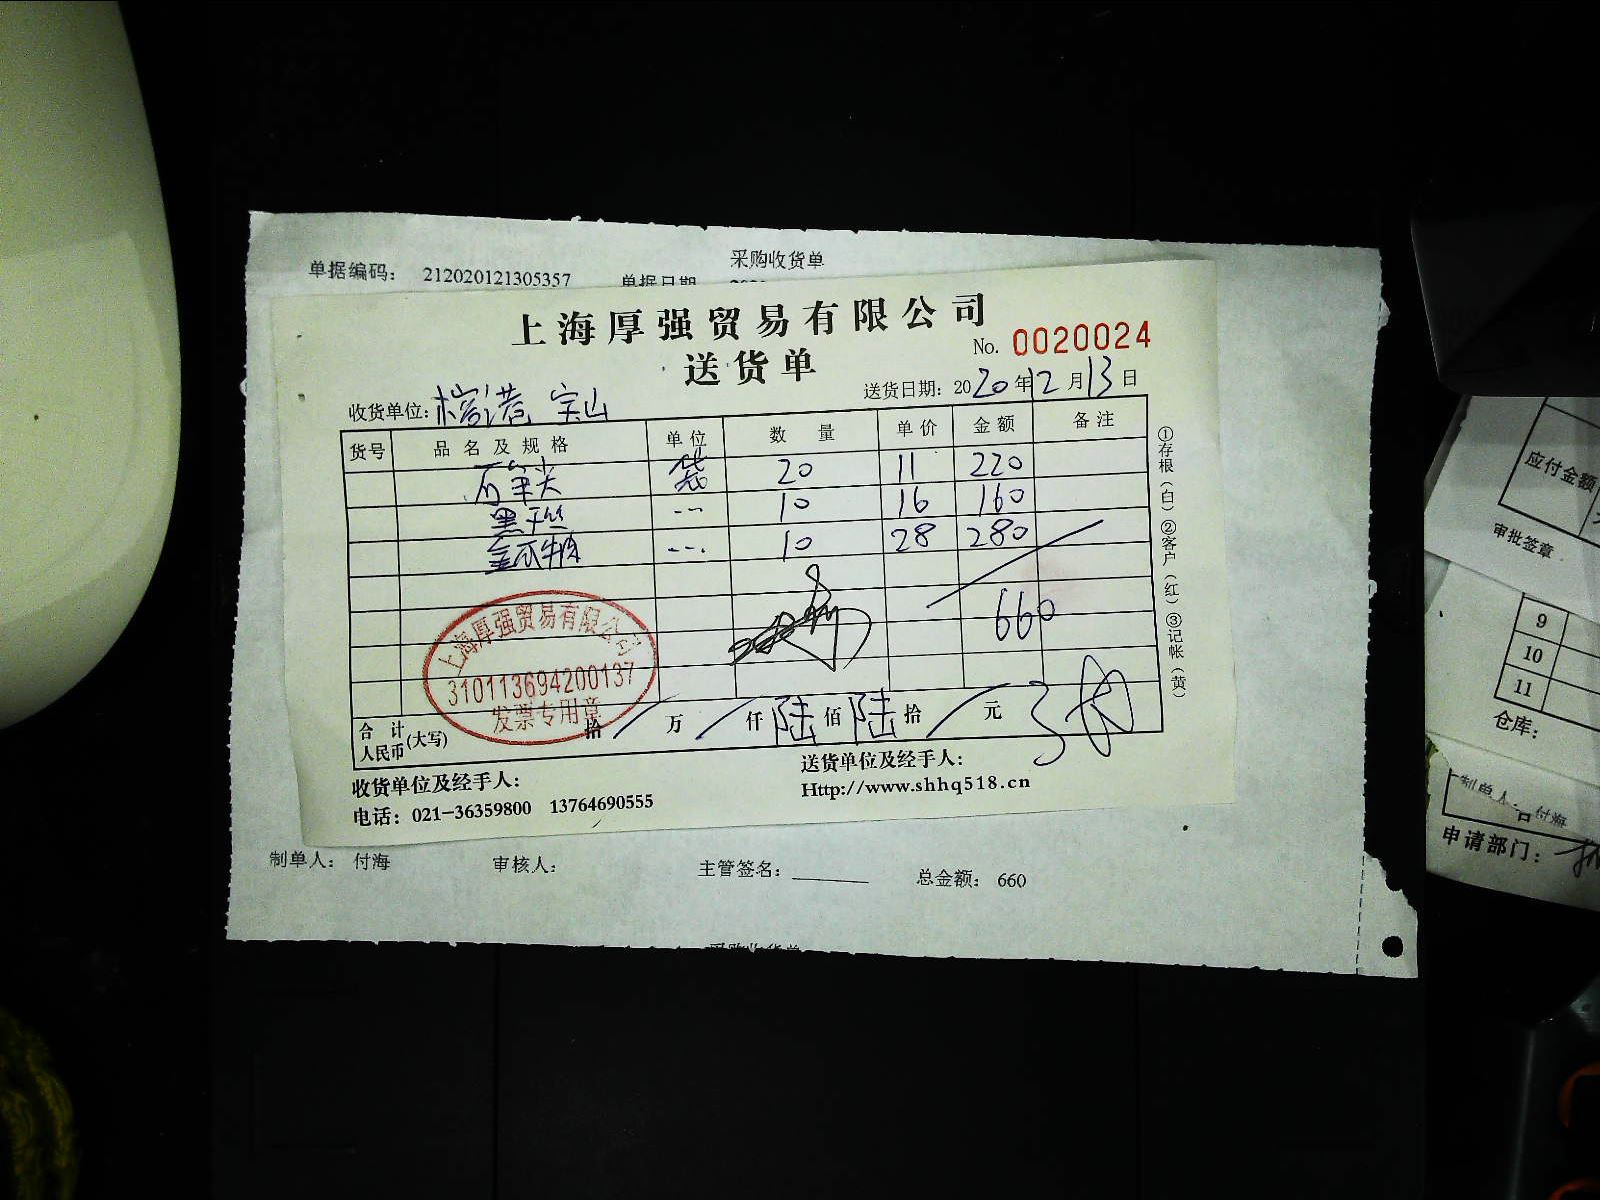 采购收货单
单据编码： 212020121305357 单据日期
上海厚强贸易有限公司
送货单
No. 0020024
收货单位： 宝山
送货日期：2020年12月13日
货号 品名及规格 单位 数量 单价 金额 备注
袋 20 11 220
10 16 160
10 28 280
660
上海厚强贸易有限公司
310113694200137
发票专用章
合计人民币(大写) 拾 万 仟 陆 佰 陆 拾 元
收货单位及经手人：
送货单位及经手人：
电话：021-36359800 13764690555
Http://www.shhq518.cn
①存根（白）②客户（红）③记帐（黄）
制单人： 付海 审核人： 主管签名： 总金额： 660
采购收货单
应付金额
审批签章
9
10
11
仓库：
制单人： 付海
申请部门：